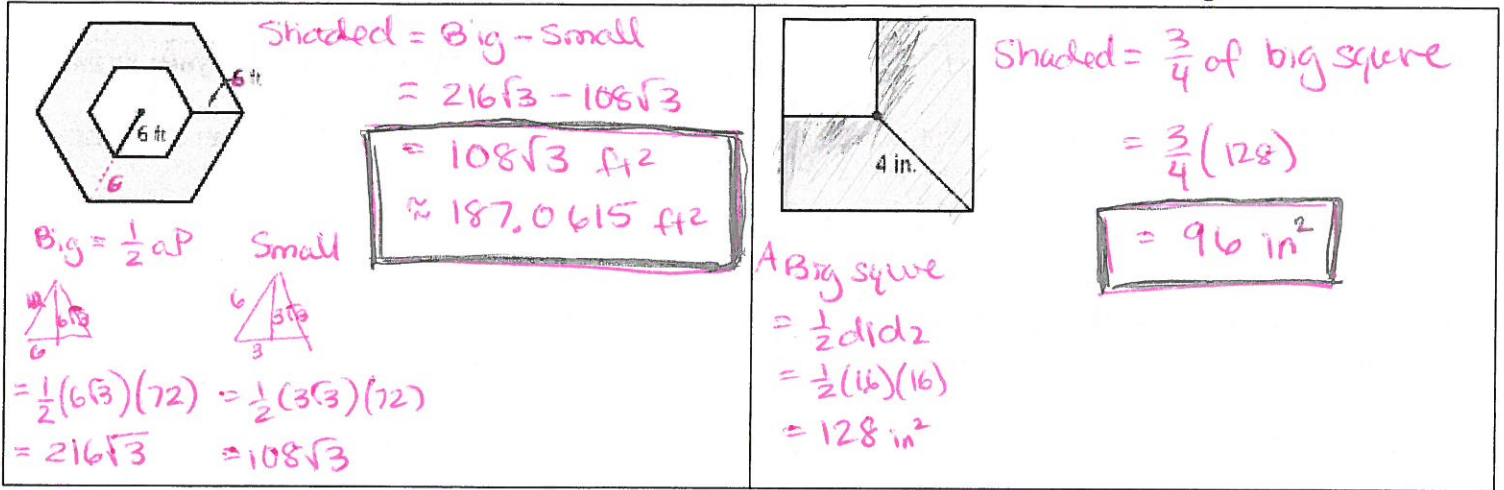 Shaded = Big - Small
= 216√3 - 108√3
= 108√3 ft²
≈ 187.0615 ft²
6 ft
6 ft
6
Big = 1/2 aP
6√3
6
= 1/2(6√3)(72)
= 216√3
Small
6
3√3
3
= 1/2(3√3)(72)
= 108√3
4 in.
Shaded = 3/4 of big square
= 3/4(128)
= 96 in²
A Big square
= 1/2 d1d2
= 1/2(16)(16)
= 128 in²